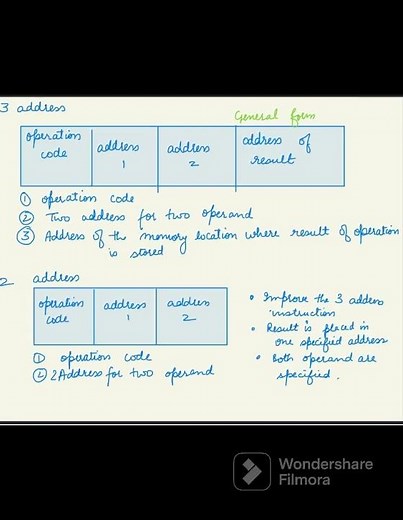 3 address
General form
operation code
address 1
address 2
address of result
① operation code
② Two address for two operand
③ Address of the memory location where result of operation
is stored
2 address
operation code
address 1
address 2
• Improve the 3 address
instruction
• Result is placed in
one specified address
• both operand are
specified.
① operation code
② 2Address for two operand
Wondershare
Filmora